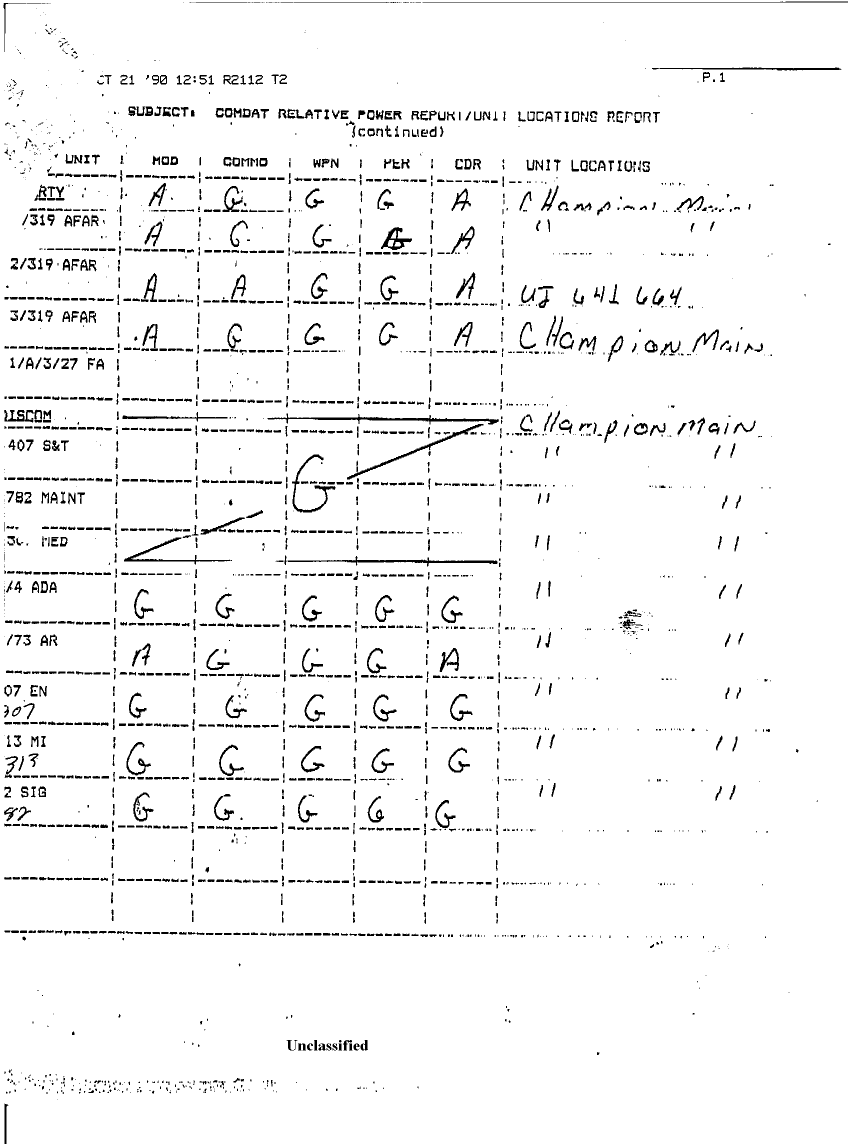 CT 21 '90 12:51 R2112 T2 P.1
SUBJECT: COMDAT RELATIVE POWER REPORT/UNIT LOCATIONS REPORT
(continued)
UNIT MOD COMMO WPN PER CDR UNIT LOCATIONS
RTY A G G G A CHampion Main
/319 AFAR A G G A " "
2/319 AFAR A A G G A UJ 641 664
3/319 AFAR A G G G A CHampion Main
1/A/3/27 FA
DISCOM CHampion Main
407 S&T G " "
782 MAINT " "
MED " "
/4 ADA G G G G G " "
/73 AR A G G G A " "
07 EN G G G G G " "
307
13 MI G G G G G " "
313
2 SIG G G G G G " "
82
Unclassified